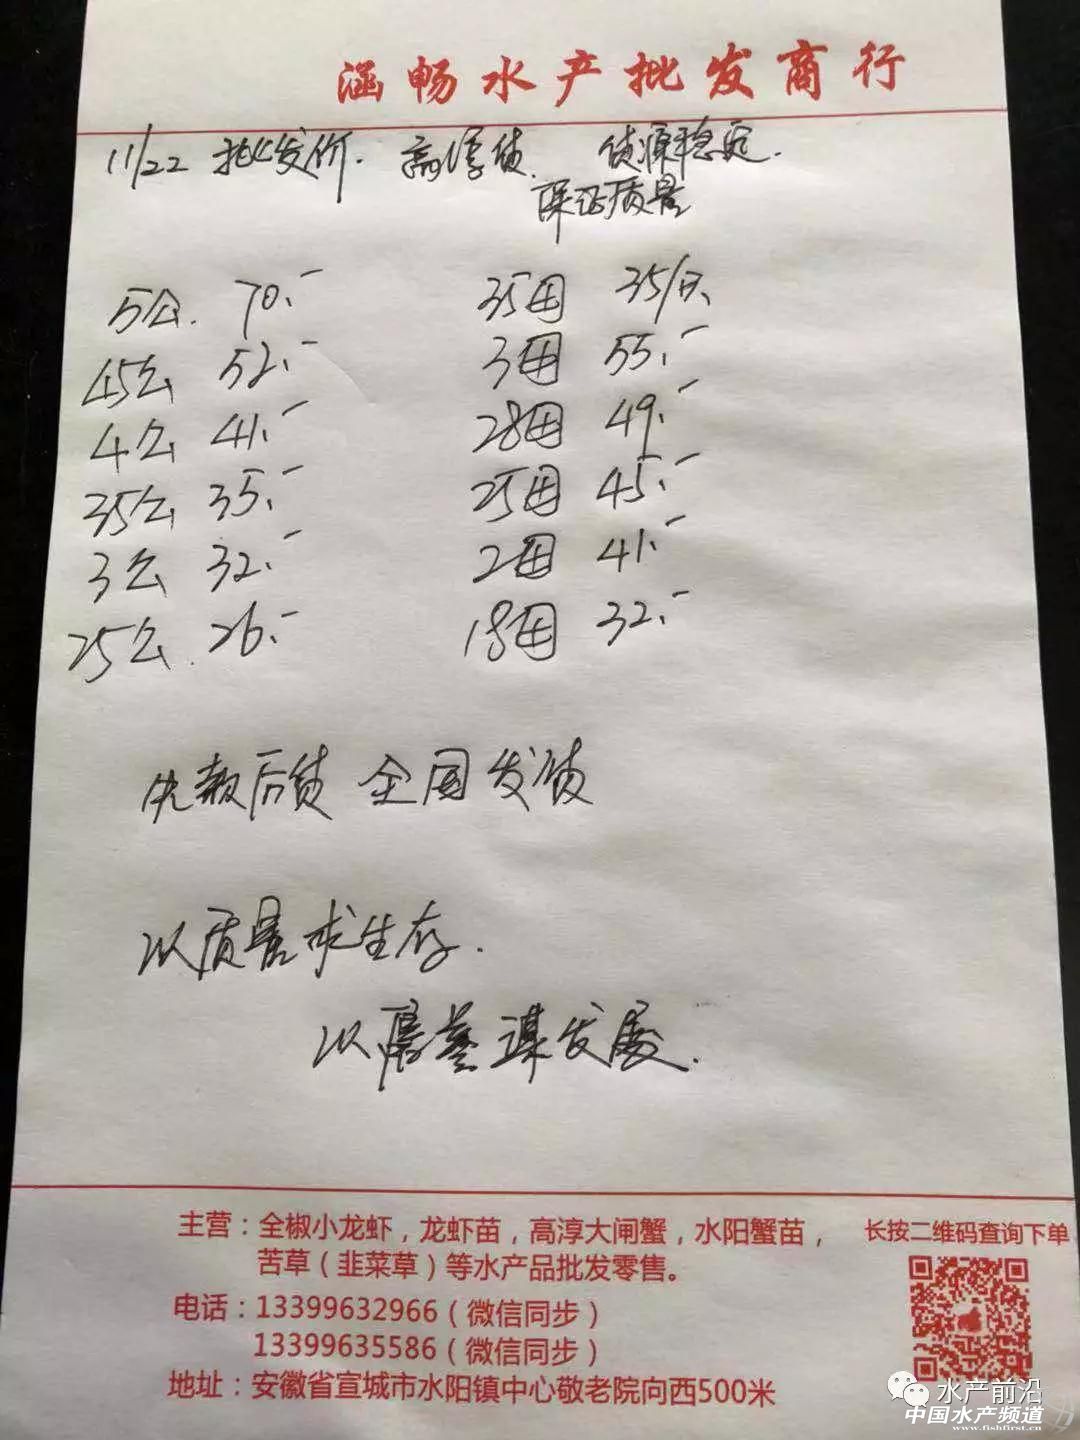 涵畅水产批发商行
11/22 批发价. 高淳货. 货源稳定.
保证质量
5公. 70.- 35母 35/只.
45公 52.- 3母 55.-
4公 41.- 28母 49.-
35公 35.- 25母 45.-
3公 32.- 2母 41.-
25公. 26.- 18母 32.-
先款后货 全国发货
以质量求生存.
以质量谋发展.
主营：全椒小龙虾，龙虾苗，高淳大闸蟹，水阳蟹苗，
苦草（韭菜草）等水产品批发零售。
长按二维码查询下单
电话：13399632966（微信同步）
13399635586（微信同步）
地址：安徽省宣城市水阳镇中心敬老院向西500米
水产前沿
中国水产频道
www.fishfirst.cn